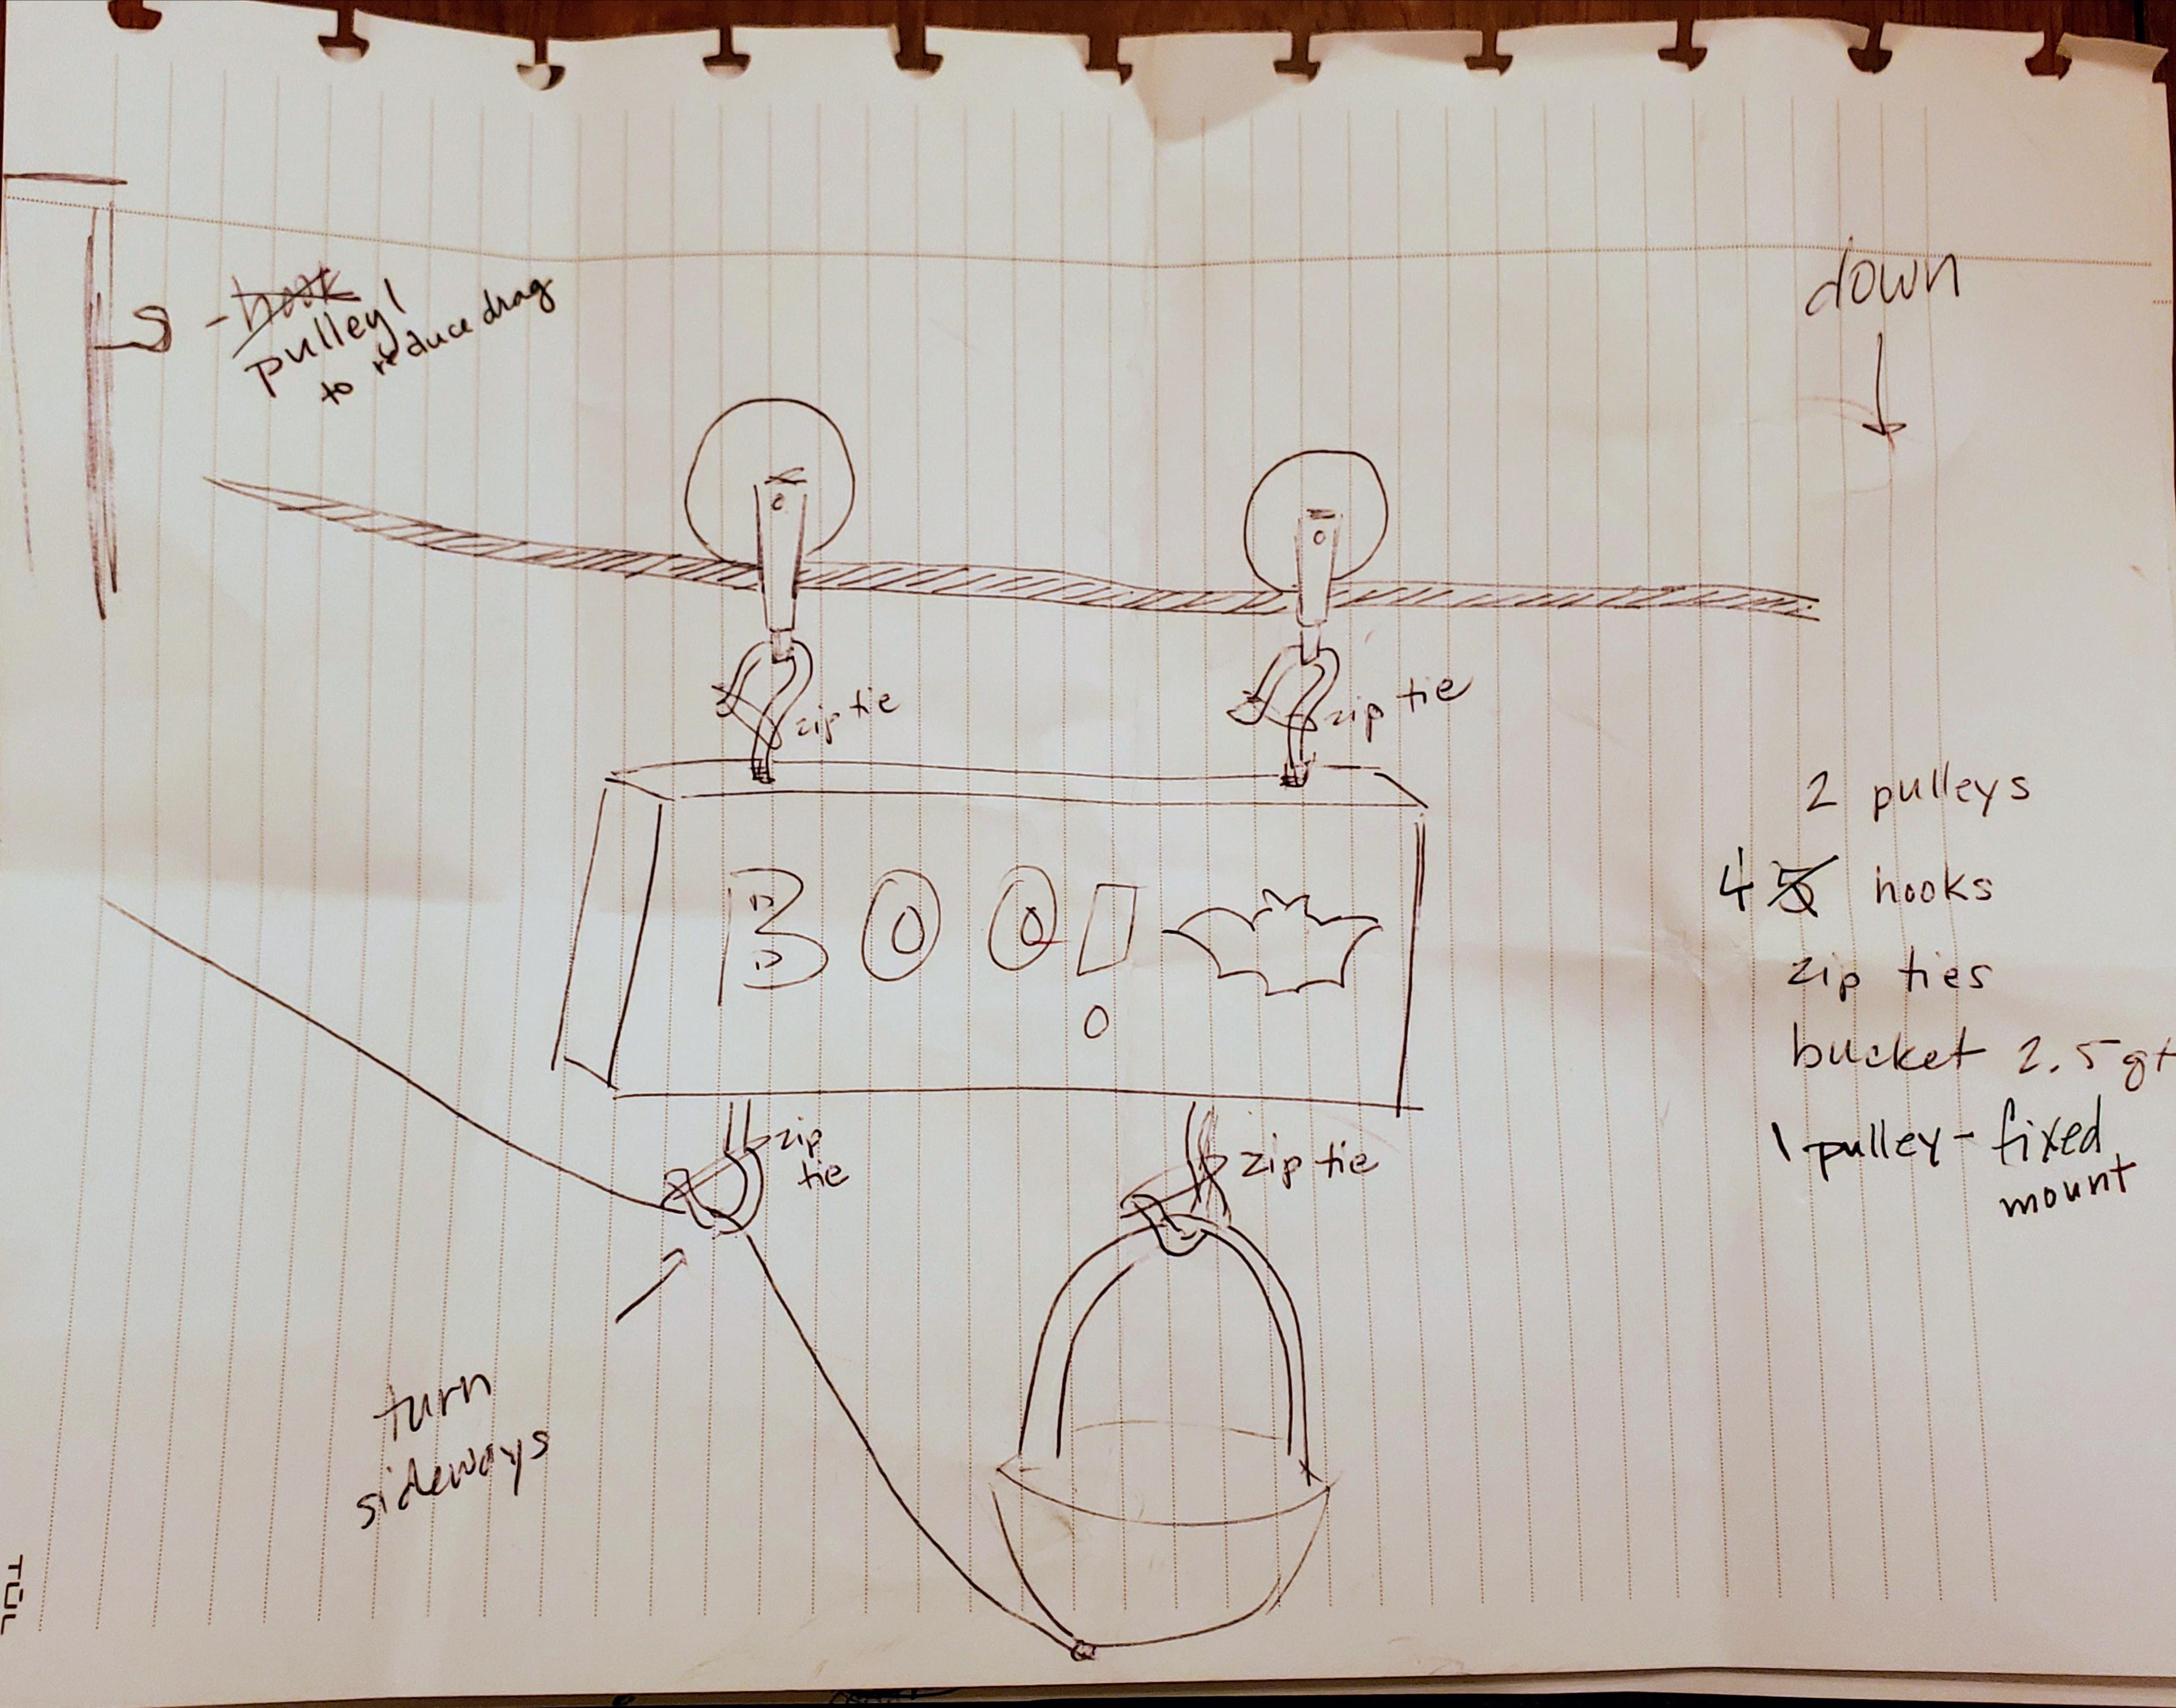 - hook
pulley!
to reduce drag
down
zip tie
zip tie
BOO!
2 pulleys
4 5 hooks
zip ties
bucket 2.5 qt
1 pulley - fixed
mount
zip
tie
zip tie
turn
sideways
TÜL